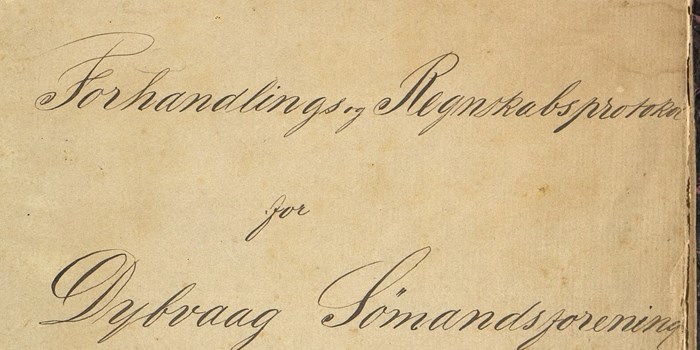 Forhandlings og Regnskabsprotokol
for
Dybvaag Sömandsforening